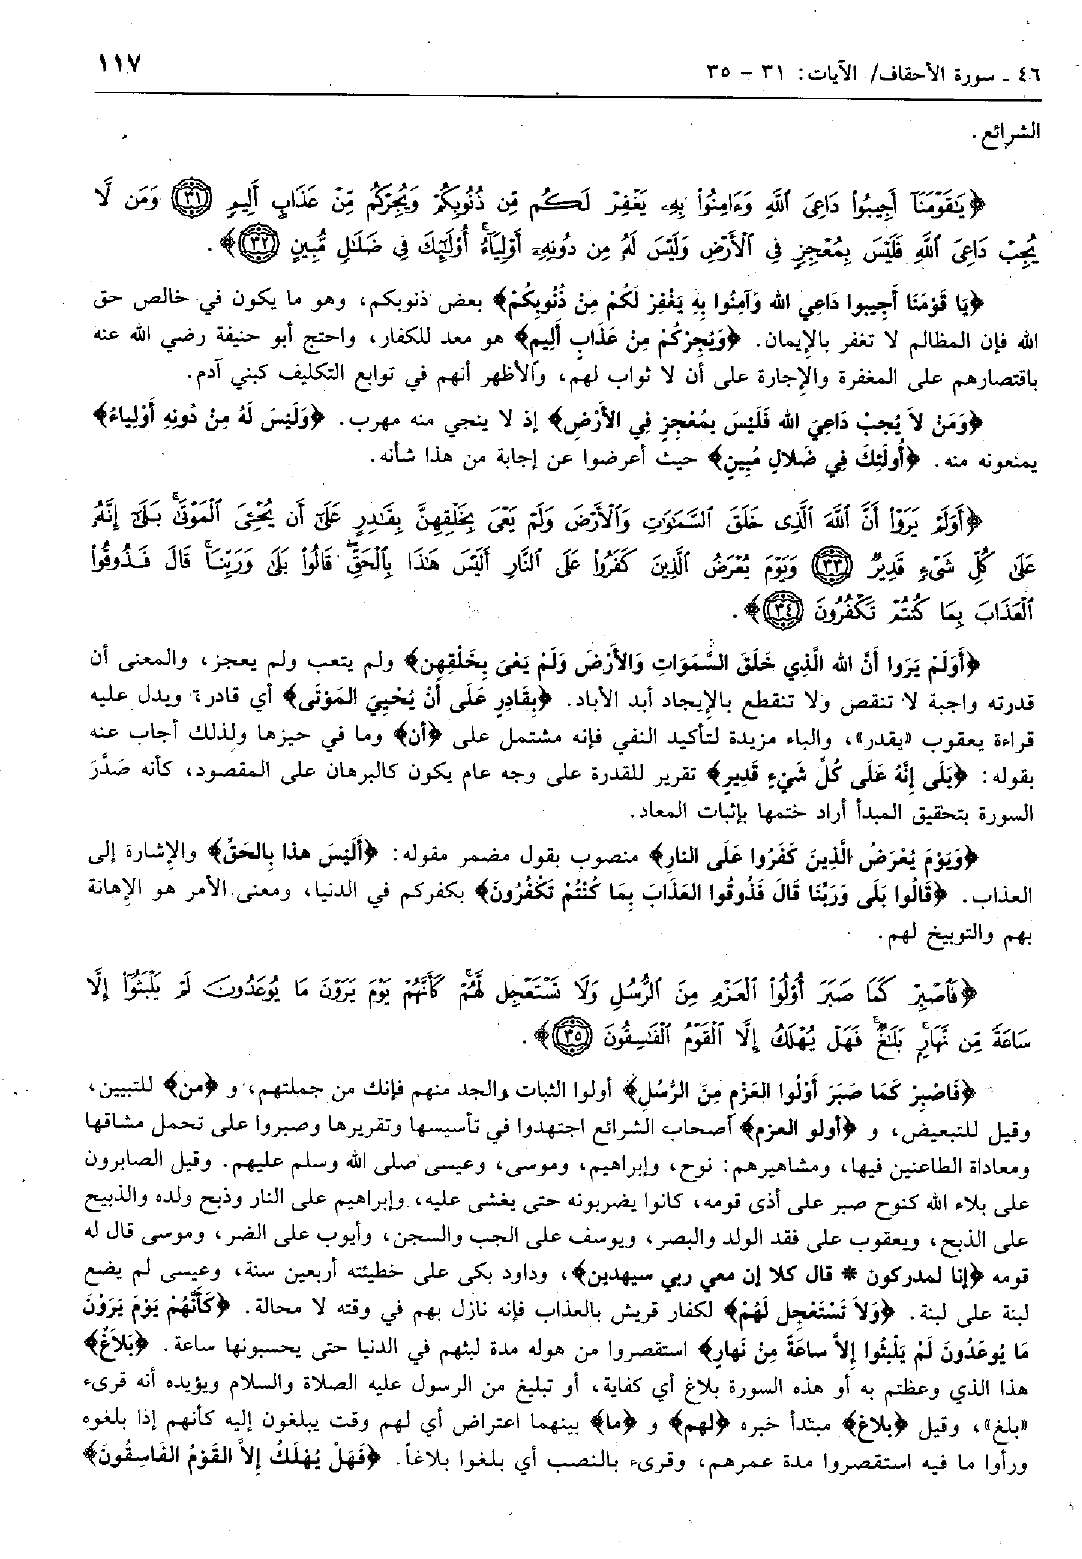 ٤٦ ـ سورة الأحقاف/ الآيات: ٣١ - ٣٥
١١٧
الشرائع.
﴿يَٰقَوْمَنَآ أَجِيبُوا۟ دَاعِىَ ٱللَّهِ وَءَامِنُوا۟ بِهِۦ يَغْفِرْ لَكُم مِّن ذُنُوبِكُمْ وَيُجِرْكُم مِّنْ عَذَابٍ أَلِيمٍ ﴿٣١﴾ وَمَن لَّا
يُجِبْ دَاعِىَ ٱللَّهِ فَلَيْسَ بِمُعْجِزٍ فِى ٱلْأَرْضِ وَلَيْسَ لَهُۥ مِن دُونِهِۦٓ أَوْلِيَآءُ ۚ أُو۟لَٰٓئِكَ فِى ضَلَٰلٍ مُّبِينٍ ﴿٣٢﴾﴾.
﴿يَا قَوْمَنَا أَجِيبوا دَاعِيَ الله وَآمِنُوا بِهِ يَغْفِر لَكُمْ مِنْ ذُنُوبِكُمْ﴾ بعض ذنوبكم، وهو ما يكون في خالص حق
الله فإن المظالم لا تغفر بالإِيمان. ﴿وَيُجِرْكُمْ مِنْ عَذَابٍ أَلِيم﴾ هو معد للكفار، واحتج أبو حنيفة رضي الله عنه
باقتصارهم على المغفرة والإِجارة على أن لا ثواب لهم، والأظهر أنهم في توابع التكليف كبني آدم.
﴿وَمَنْ لاَ يُجِبْ دَاعِيَ الله فَلَيْسَ بِمُعْجِزٍ فِي الأَرْضِ﴾ إذ لا ينجي منه مهرب. ﴿وَلَيْسَ لَهُ مِنْ دُونِهِ أَوْلِيَاءُ﴾
يمنعونه منه. ﴿أُولَئِكَ فِي ضَلاَلٍ مُبِينٍ﴾ حيث أعرضوا عن إجابة من هذا شأنه.
﴿أَوَلَمْ يَرَوْا۟ أَنَّ ٱللَّهَ ٱلَّذِى خَلَقَ ٱلسَّمَٰوَٰتِ وَٱلْأَرْضَ وَلَمْ يَعْىَ بِخَلْقِهِنَّ بِقَٰدِرٍ عَلَىٰٓ أَن يُحْـِۧىَ ٱلْمَوْتَىٰ ۚ بَلَىٰٓ إِنَّهُۥ
عَلَىٰ كُلِّ شَىْءٍ قَدِيرٌ ﴿٣٣﴾ وَيَوْمَ يُعْرَضُ ٱلَّذِينَ كَفَرُوا۟ عَلَى ٱلنَّارِ أَلَيْسَ هَٰذَا بِٱلْحَقِّ ۖ قَالُوا۟ بَلَىٰ وَرَبِّنَا ۚ قَالَ فَذُوقُوا۟
ٱلْعَذَابَ بِمَا كُنتُمْ تَكْفُرُونَ ﴿٣٤﴾﴾.
﴿أَوَلَمْ يَرَوا أَنَّ الله الَّذِي خَلَقَ السَّمَوَاتِ وَالأَرْضَ وَلَمْ يَعْيَ بِخَلْقِهِن﴾ ولم يتعب ولم يعجز، والمعنى أن
قدرته واجبة لا تنقص ولا تنقطع بالإِيجاد أبد الآباد. ﴿بِقَادِرٍ عَلَى أَنْ يُحْيِيَ المَوْتَى﴾ أي قادر، ويدل عليه
قراءة يعقوب «يقدر»، والباء مزيدة لتأكيد النفي فإنه مشتمل على ﴿أن﴾ وما في حيزها ولذلك أجاب عنه
بقوله: ﴿بَلَى إِنَّهُ عَلَى كُلِّ شَيْءٍ قَدِير﴾ تقرير للقدرة على وجه عام يكون كالبرهان على المقصود، كأنه صَدَّرَ
السورة بتحقيق المبدأ أراد ختمها بإثبات المعاد.
﴿وَيَوْمَ يُعْرَضُ الَّذِينَ كَفَرُوا عَلَى النارِ﴾ منصوب بقول مضمر مقوله: ﴿أَلَيْسَ هذا بِالحَقِّ﴾ والإِشارة إلى
العذاب. ﴿قَالُوا بَلَى وَرَبِّنَا قَالَ فَذُوقُوا العَذَابَ بِمَا كُنْتُمْ تَكْفُرُونَ﴾ بكفركم في الدنيا، ومعنى الأمر هو الإِهانة
بهم والتوبيخ لهم.
﴿فَٱصْبِرْ كَمَا صَبَرَ أُو۟لُوا۟ ٱلْعَزْمِ مِنَ ٱلرُّسُلِ وَلَا تَسْتَعْجِل لَّهُمْ ۚ كَأَنَّهُمْ يَوْمَ يَرَوْنَ مَا يُوعَدُونَ لَمْ يَلْبَثُوٓا۟ إِلَّا
سَاعَةً مِّن نَّهَارٍ ۚ بَلَٰغٌ ۚ فَهَلْ يُهْلَكُ إِلَّا ٱلْقَوْمُ ٱلْفَٰسِقُونَ ﴿٣٥﴾﴾.
﴿فَاصْبِرْ كَمَا صَبَرَ أَوْلُوا العَزْمِ مِنَ الرُّسُلِ﴾ أولوا الثبات والجد منهم فإنك من جملتهم، و ﴿من﴾ للتبيين،
وقيل للتبعيض، و ﴿أولو العزم﴾ أصحاب الشرائع اجتهدوا في تأسيسها وتقريرها وصبروا على تحمل مشاقها
ومعاداة الطاعنين فيها، ومشاهيرهم: نوح، وإبراهيم، وموسى، وعيسى صلى الله وسلم عليهم. وقيل الصابرون
على بلاء الله كنوح صبر على أذى قومه، كانوا يضربونه حتى يغشى عليه، وإبراهيم على النار وذبح ولده والذبيح
على الذبح، ويعقوب على فقد الولد والبصر، ويوسف على الجب والسجن، وأيوب على الضر، وموسى قال له
قومه ﴿إنا لمدركون * قال كلا إن معي ربي سيهدين﴾، وداود بكى على خطيئته أربعين سنة، وعيسى لم يضع
لبنة على لبنة. ﴿وَلاَ تَسْتَعْجِل لَهُمْ﴾ لكفار قريش بالعذاب فإنه نازل بهم في وقته لا محالة. ﴿كَأَنَّهُمْ يَوْمَ يَرَوْنَ
مَا يُوعَدُونَ لَمْ يَلْبَثُوا إِلاَّ سَاعَةً مِنْ نَهارٍ﴾ استقصروا من هوله مدة لبثهم في الدنيا حتى يحسبونها ساعة. ﴿بَلاَغٌ﴾
هذا الذي وعظتم به أو هذه السورة بلاغ أي كفاية، أو تبليغ من الرسول عليه الصلاة والسلام ويؤيده أنه قرىء
«بلغ»، وقيل ﴿بلاغ﴾ مبتدأ خبره ﴿لهم﴾ و ﴿ما﴾ بينهما اعتراض أي لهم وقت يبلغون إليه كأنهم إذا بلغوه
ورأوا ما فيه استقصروا مدة عمرهم، وقرىء بالنصب أي بلغوا بلاغاً. ﴿فَهَلْ يُهْلَكُ إِلاَّ القَوْمُ الفَاسِقُونَ﴾